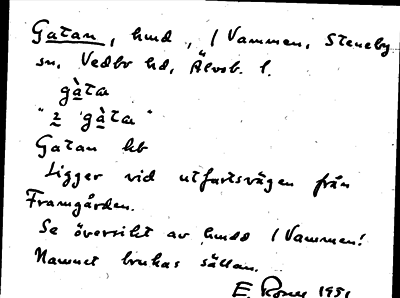 Gatan, hmd, / Vammen, Steneby
sn, Vedbo hd, Älvsb. l.
gàta
"z gàta"
Gatan hb
Ligger vid utfartsvägen från
Framgården.
Se översikt av hmdd / Vammen!
Namnet brukas sällan.
E. 1951